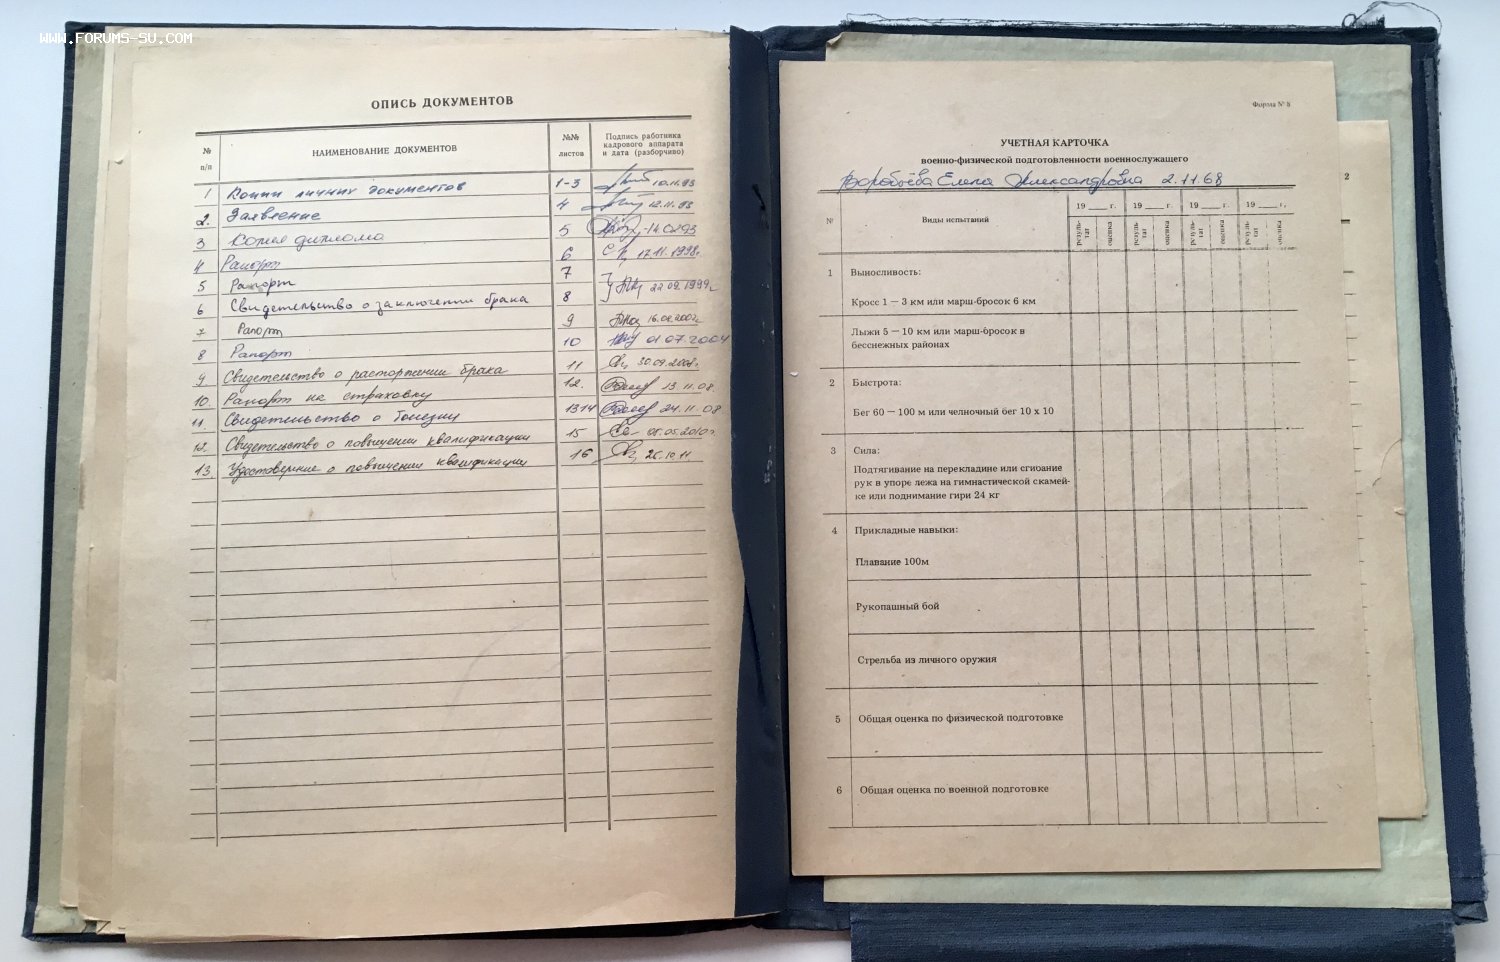 WWW.FORUMS-SU.COM
ОПИСЬ ДОКУМЕНТОВ
№ п/п
НАИМЕНОВАНИЕ ДОКУМЕНТОВ
№№ листов
Подпись работника
кадрового аппарата
и дата (разборчиво)
1 Копии личных документов 1-3 10.11.93
2. Заявление 4 12.11.93
3 Копия диплома 5
4 Рапорт 6 17.11.1998г.
5 Рапорт 7
6 Свидетельство о заключении брака 8 22.09.1999г
7 Рапорт 9
8 Рапорт 10 01.07.2004
9 Свидетельство о расторжении брака 11 30.09.2008г.
10. Рапорт на страховку 12. 13.11.08.
11. Свидетельство о болезни 1314 24.11.08
12. Свидетельство о повышении квалификации 15 05.05.2010г.
13. Удостоверение о повышении квалификации 16 26.10.11
Форма № 8
УЧЕТНАЯ КАРТОЧКА
военно-физической подготовленности военнослужащего
Воробьёва Елена Александровна 2.11.68
№
Виды испытаний
19 ___ г. 19 ___ г. 19 ___ г. 19 ___ г.
резуль-тат оценка резуль-тат оценка резуль-тат оценка резуль-тат оценка
1 Выносливость:
Кросс 1 — 3 км или марш-бросок 6 км
Лыжи 5 — 10 км или марш-бросок в
бесснежных районах
2 Быстрота:
Бег 60 — 100 м или челночный бег 10 х 10
3 Сила:
Подтягивание на перекладине или сгибание
рук в упоре лежа на гимнастической скамей-
ке или поднимание гири 24 кг
4 Прикладные навыки:
Плавание 100м
Рукопашный бой
Стрельба из личного оружия
5 Общая оценка по физической подготовке
6 Общая оценка по военной подготовке
2